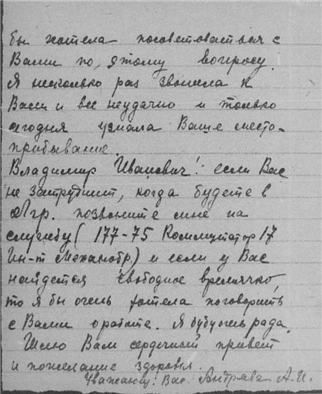 бы хотела посоветоваться с
Вами по этому вопросу.
Я несколько раз звонила к
Вам и все неудачно и только
сегодня узнала Ваше место-
прибывание.
Владимир Иванович! если Вас
не затруднит, когда будете в
Лгр. позвоните мне на
службу (177-75 Коммутатор 17
Ин-т Механобр) и если у Вас
найдется свободное времячко,
то я бы очень хотела поговорить
с Вами о работе. Я буду очень рада.
Шлю Вам сердечный привет
и пожелание здоровья.
Уважающ. Вас А.И.